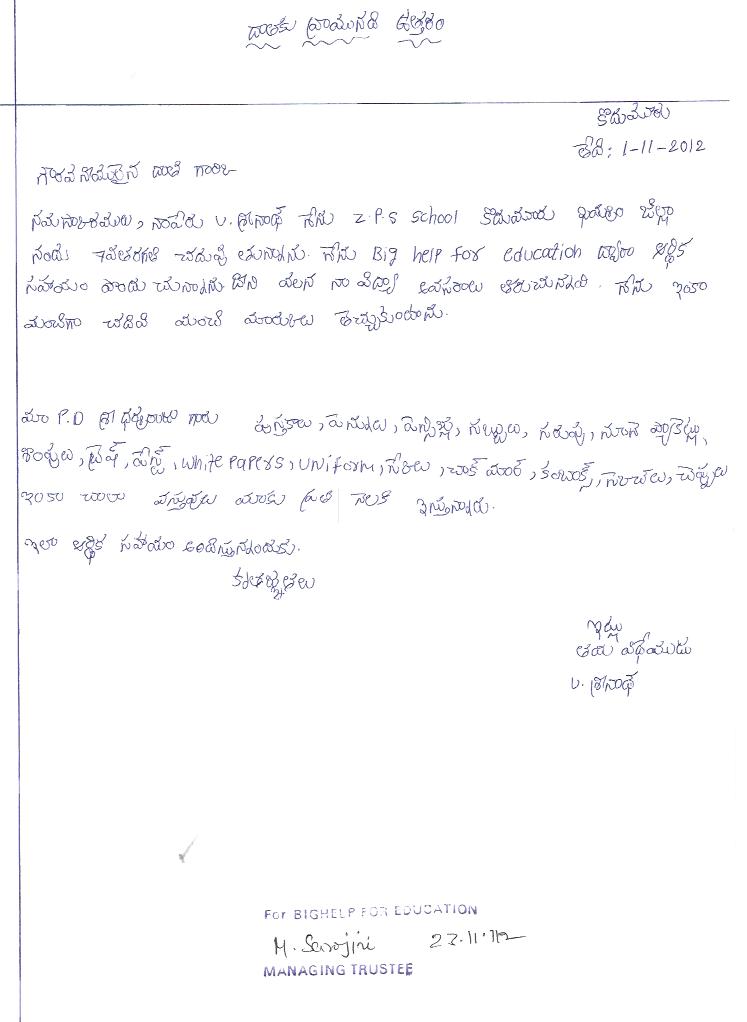 దాతకు వ్రాయునది ఉత్తరం
కొడుమూరు
తేది: 1-11-2012
గౌరవనీయులైన దాత గారికి
నమస్కారములు, నాపేరు V. శ్రీనాథ్ నేను Z.P.S School కొడుమూరు జిల్లా
నందు 7వతరగతి చదువు తున్నాను. నేను Big help for education ద్వారా ఆర్థిక
సహాయం పొందు చున్నాను దీని వలన నా విద్యా అవసరాలు తీరుచున్నవి. నేను ఇంకా
మంచిగా చదివి మంచి మార్కులు తెచ్చుకుంటాను.
మా P.D శ్రీ గారు పుస్తకాలు, పెన్నులు, పెన్సిల్లు, సబ్బులు, సరుపు, నూనె ప్యాకెట్లు,
శాంపులు, బ్రెష్, పేస్ట్, white papers, uniform, చాక్ పీసులు, చెప్పులు
ఇంకా చాలా వస్తువులు మాకు ప్రతి నెలకి ఇస్తున్నారు.
ఇలా ఆర్థిక సహాయం అందిస్తున్నందుకు.
కృతజ్ఞతలు
ఇట్లు
తమ విధేయుడు
V. శ్రీనాథ్
For BIGHELP FOR EDUCATION
M. Sarojini 23.11.12
MANAGING TRUSTEE